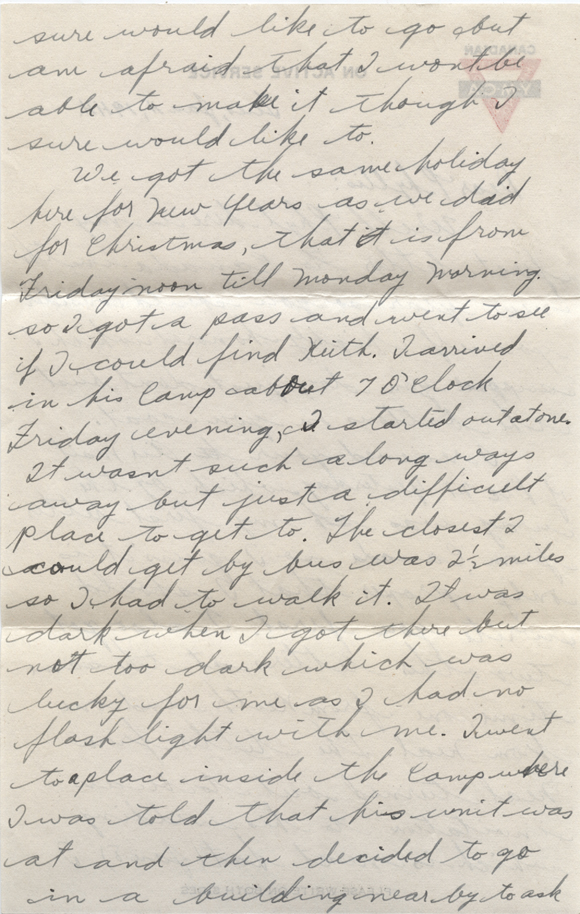 sure would like to go but
am afraid that I wont be
able to make it though I
sure would like to.
We got the same holiday
here for New Years as we did
for Christmas, that it is from
Friday noon till Monday Morning.
so I got a pass and went to see
if I could find Keith. I arrived
in his Camp about 7 O'Clock
Friday evening, I started out at one.
It wasnt such a long ways
away but just a difficult
place to get to. The closest I
could get by bus was 2½ miles
so I had to walk it. It was
dark when I got there but
not too dark which was
lucky for me as I had no
flash light with me. I went
to a place inside the Camp where
I was told that his unit was
at and then decided to go
in a building near by to ask